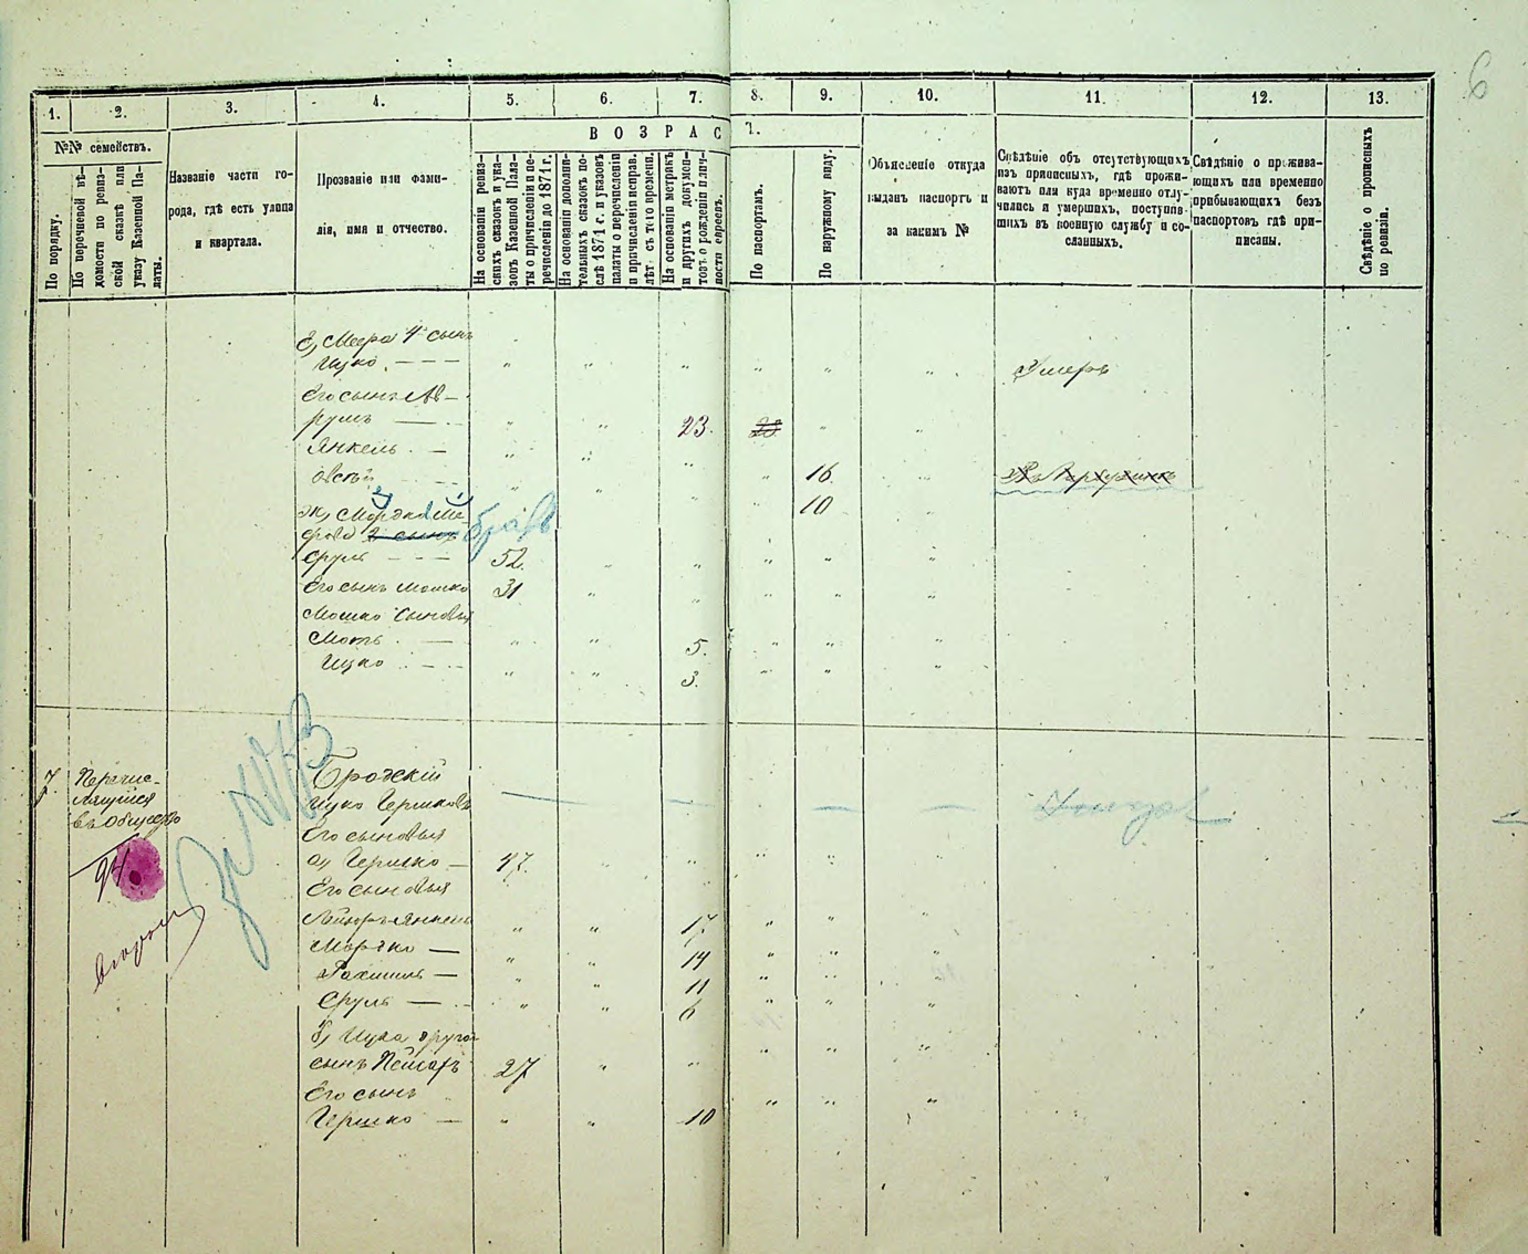 6
1. 2. 3. 4. 5. 6. 7. 8. 9. 10. 11. 12. 13.
№№ семействъ.
По порядку.
По перечневой вѣ-
домости по ревиз-
ской сказкѣ или
указу Казенной Па-
латы.
Названіе части го-
рода, гдѣ есть улица
и квартала.
Прозваніе или фами-
лія, имя и отчество.
ВОЗРАС
Т.
На основаніи ревиз-
скихъ сказокъ и ука-
зовъ Казенной Пала-
ты о причисленіи и пе-
речисленіи до 1871 г.
На основаніи дополни-
тельныхъ сказокъ по-
слѣ 1871 г. и указовъ
палаты о перечисленіи
и причисленіи исправ.
лѣт съ того времени.
На основаніи метрикъ
и другихъ докумен-
товъ о рожденіи и лич-
ности евреевъ.
По паспортамъ.
По наружному виду.
Объясненіе откуда
выданъ паспортъ и
за какимъ №
Свѣдѣніе объ отсутствующихъ
изъ приписныхъ, гдѣ прожи-
ваютъ или куда временно отлу-
чились и умершихъ, поступив-
шихъ въ военную службу и со-
сланныхъ.
Свѣдѣніе о прожива-
ющихъ или временно
прибывающихъ безъ
паспортовъ гдѣ при-
писаны.
Свѣдѣніе о прописныхъ
по ревизіи.
е, Меера 4й сынъ
Ицко Умеръ
Его сынъ Ав-
румъ 23. 23
Янкель 16
Овсѣй 10
ж, Мордко Ме-
ерова 2 сынъ братъ
Сруль 52.
Его сынъ Мошко 31
Мошко сыновья
Моть 5.
Ицко 3.
7 Перечис-
лящійся
въ Общество
94
Бродскій
Ицко Гершковъ Умеръ
Его сыновья
а, Гершко 47.
Его сыновья
Лейзоръ-Янкель 17
Мордко 14
Рахмиль 11
Сруль 6
б, Ицка другой
сынъ Пейсахъ 27
Его сынъ
Гершко 10